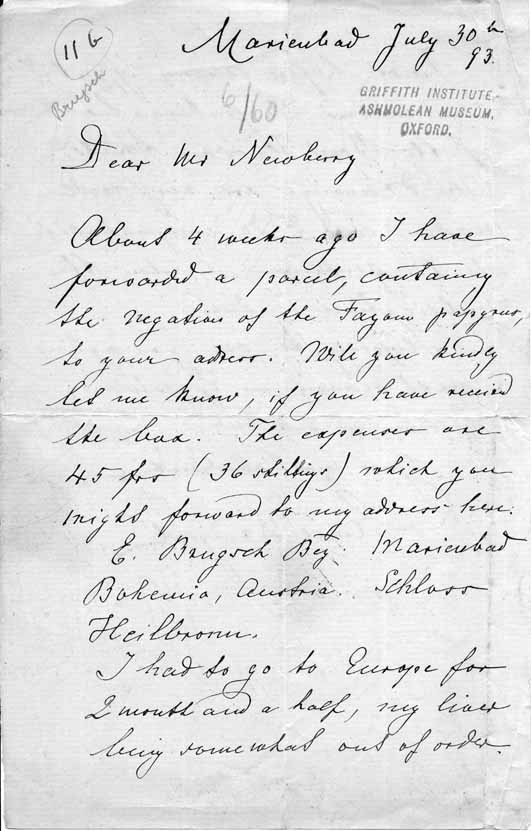 11 b
Brugsch
6/60
Marienbad July 30th
93.
GRIFFITH INSTITUTE
ASHMOLEAN MUSEUM,
OXFORD.
Dear Mr Newberry
About 4 weeks ago I have
forwarded a parcel, containing
the negatives of the Fayoum papyrus,
to your adress. Will you kindly
let me know, if you have received
the box. The expenses are
45 frs (36 shillings) which you
might forward to my address here:
E. Brugsch Bey. Marienbad
Bohemia, Austria. Schloss
Heilbronn.
I had to go to Europe for
2 month and a half, my liver
being somewhat out of order.